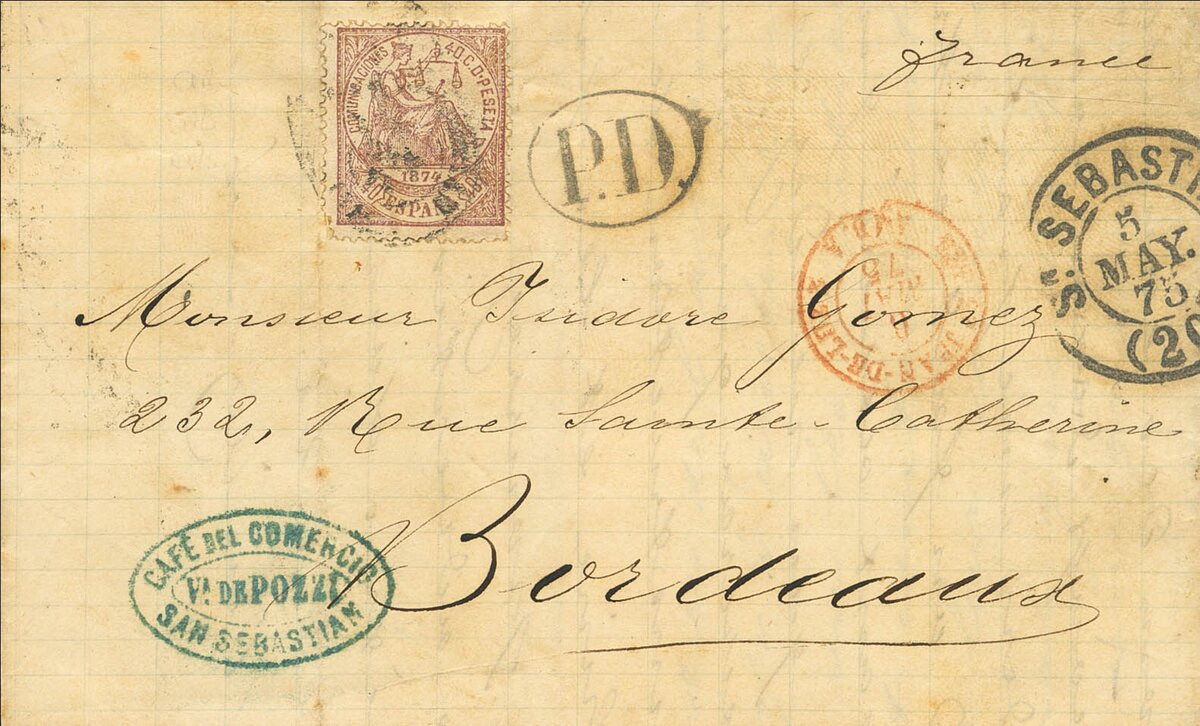 france
COMUNICACIONES 40.C.D.PESETA
1874
ESPAÑA
P.D.
Sn. SEBASTI
5
MAY.
75
(20
75
JEAN-DE-LUZ
Monsieur Isidore Gomez
232, Rue Sainte-Catherine
Bordeaux
CAFÉ DEL COMERCIO
Va. DE POZZO
SAN SEBASTIAN